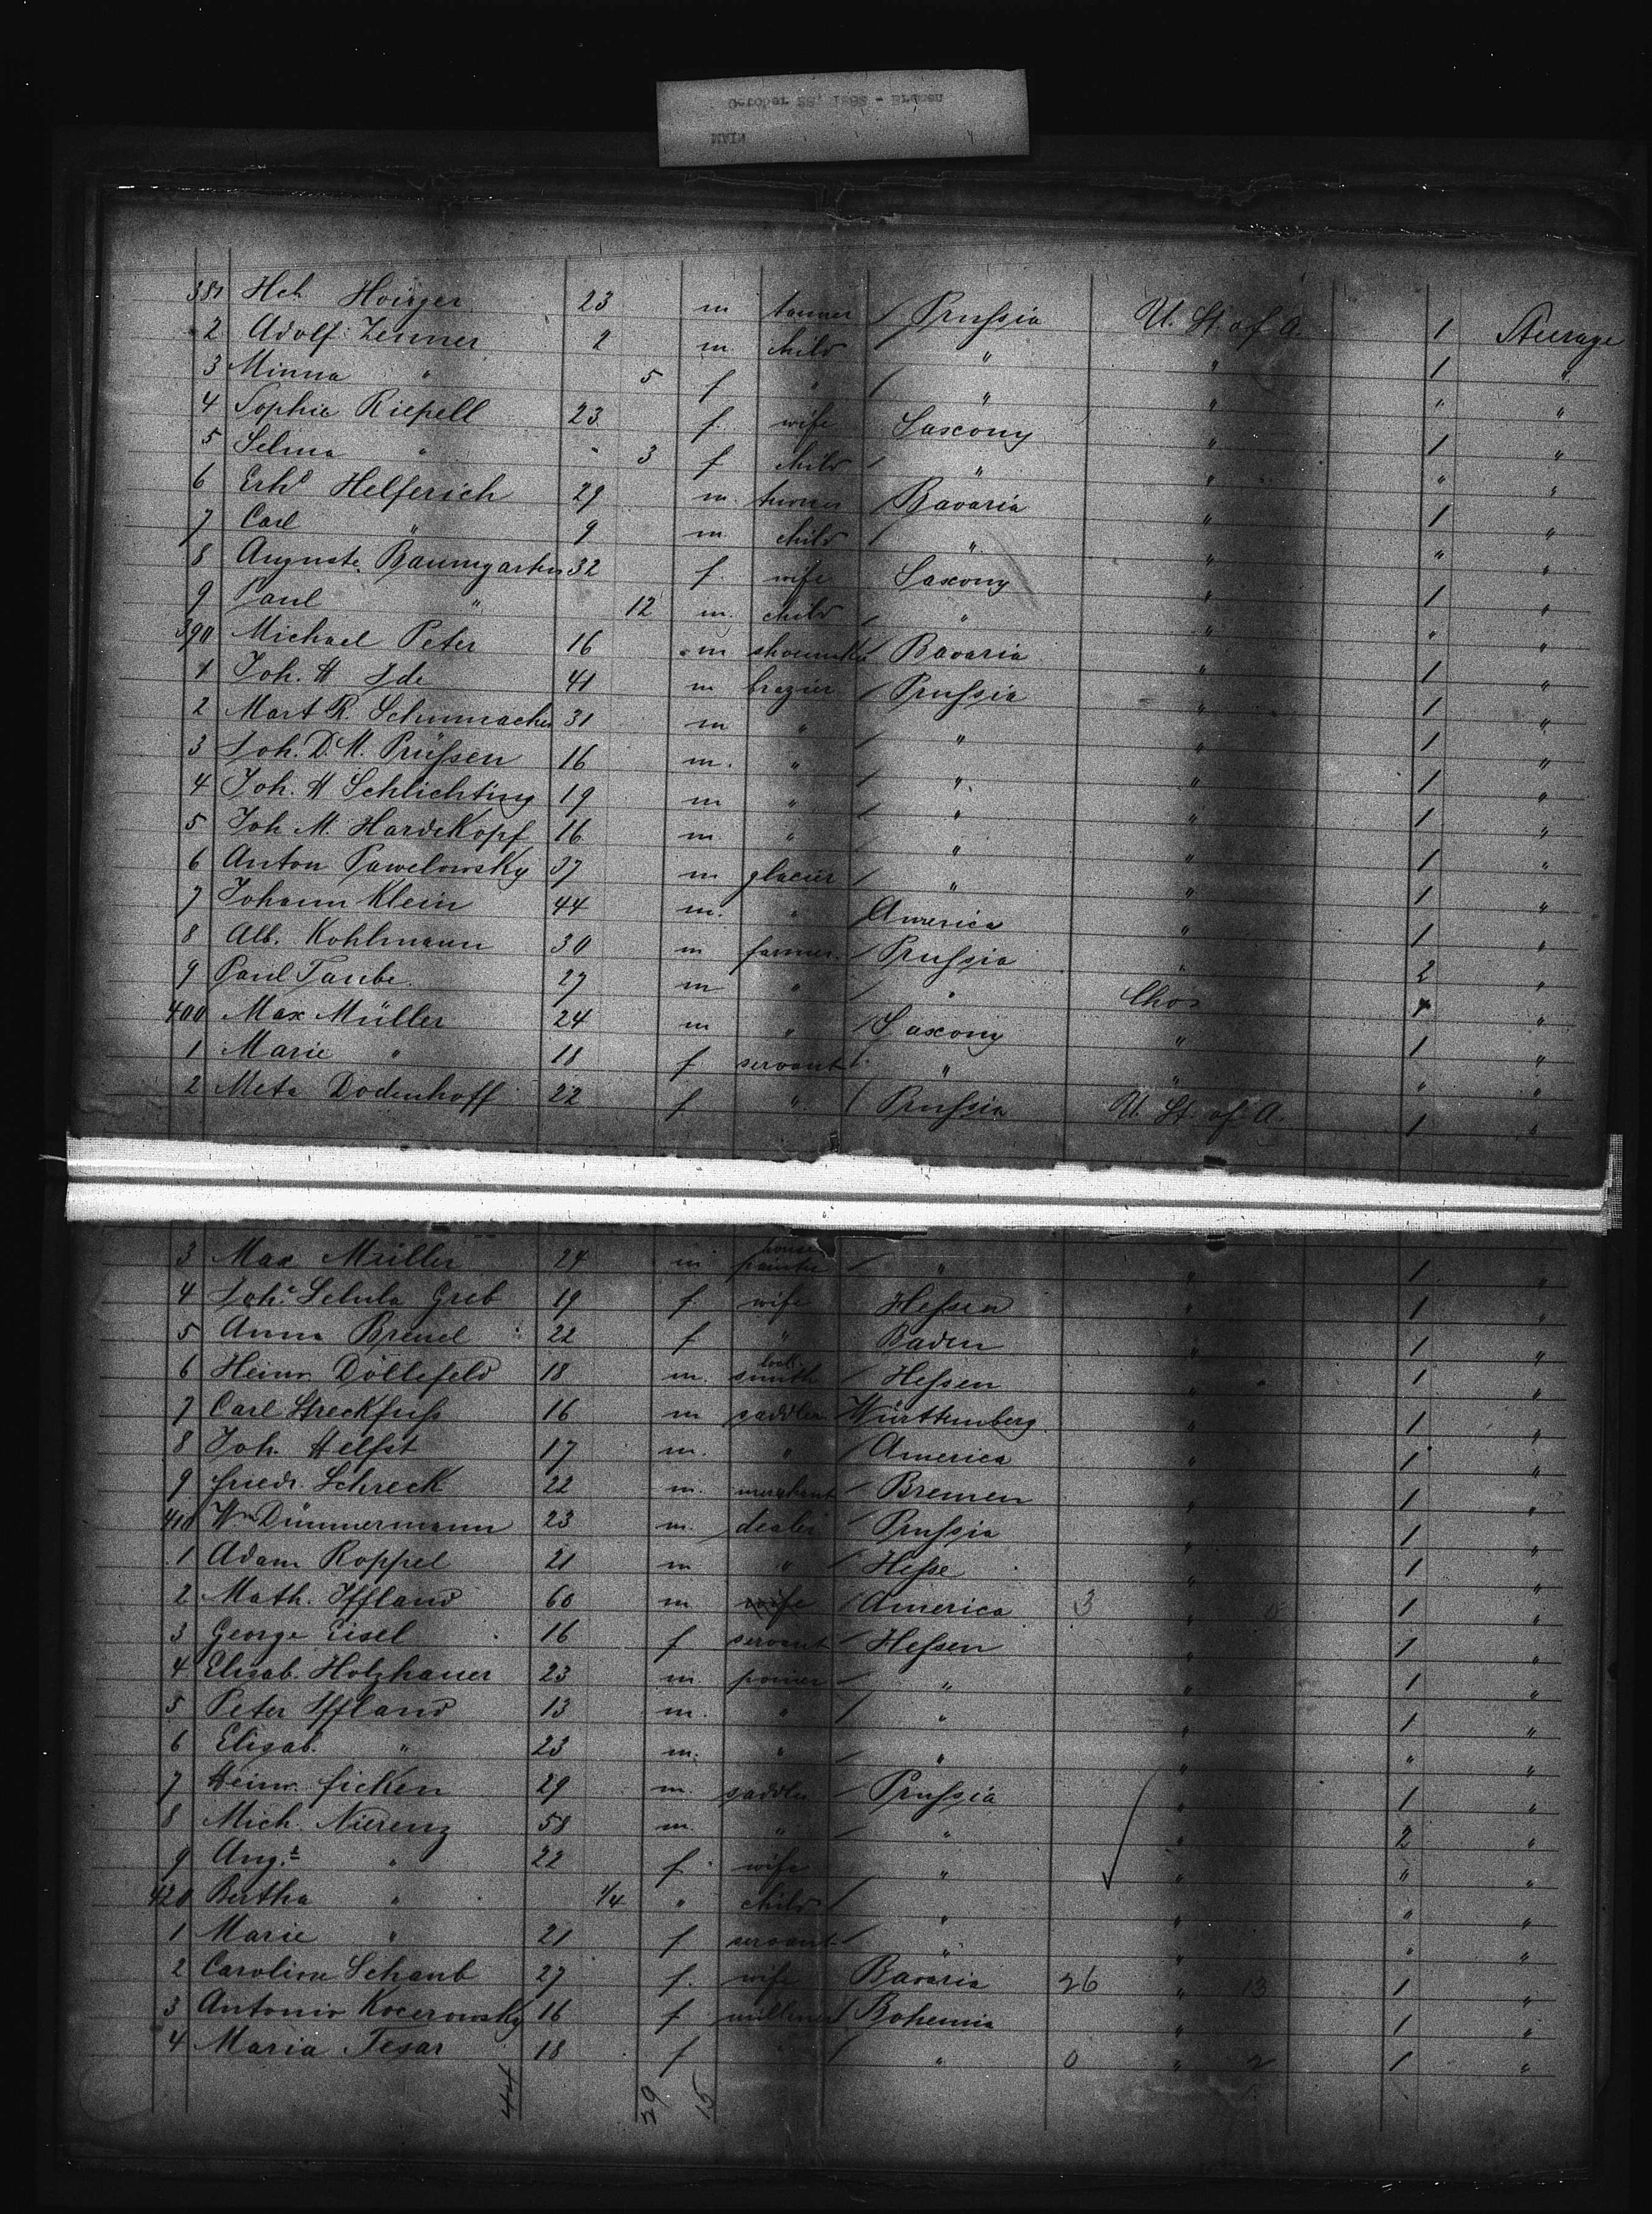 MAIN
October 28, 1882 - Bremen
381 Hch. Hoinger 23 m tanner / Prussia U. St. of A. 1 Steerage
2 Adolf Zenner 2 m child / " " 1 "
3 Minna " 5 f " / " " " "
4 Sophie Riepell 23 f. wife Saxony " 1 "
5 Selma " - 3 f child / " " " "
6 Erhd Helferich 29 m. turner / Bavaria " 1 "
7 Carl " 9 m. child / " " " "
8 Auguste Baumgarten 32 f. wife Saxony " 1 "
9 Paul " 12 m. child / " " " "
390 Michael Peter 16 m shoemker / Bavaria " 1 "
1 Joh. H Ide 41 m brazier / Prussia " 1 "
2 Mart R. Schumacher 31 m " / " " 1 "
3 Joh. D. M. Prüssen 16 m. " / " " 1 "
4 Joh. H Schlichting 19 m " / " " 1 "
5 Joh M. Hardekopf 16 m. " / " " 1 "
6 Anton Pawelowsky 37 m glacier / " " 1 "
7 Johann Klein 44 m. " America " 1 "
8 Alb. Kohlmann 30 m farmer. / Prussia " 2 "
9 Paul Taube. 27 m " / " "
400 Max Müller 24 m " / Saxony " 1 "
1 Marie " 18 f servant / " " " "
2 Meta Dodenhoff 22 f " / Prussia U. St. of A. 1 "
3 Max Müller 24 m house painter / " " 1 "
4 Johe Schula Greb 19 f. wife Hessen " 1 "
5 Anna Breuel 22 f " Baden " 1 "
6 Heinr. Döllefeld 18 m. lock smith / Hessen " 1 "
7 Carl Streckfuss 16 m saddler Württemberg " 1 "
8 Joh. Helfst 17 m. " / America " 1 "
9 Friedr. Schreck 22 m. merchant / Bremen " 1 "
410 Wm Dümmermann 23 m. dealer / Prussia " 1 "
1 Adam Roppel 21 m " / Hesse " 1 "
2 Math. Iffland 60 m wife / America 3 " 0 1 "
3 George Eisel 16 f servant / Hessen " 1 "
4 Elisab. Holzhauer 23 m. / " " 1 "
5 Peter Iffland 13 m. " / " " 1 "
6 Elisab. " 23 m. " / " " " "
7 Heinr. Ficken 29 m. saddler / Prussia " 1 "
8 Mich. Nierenz 58 m. " / " " 2 "
9 Aug.te " 22 f. wife " " " "
420 Bertha " 1/4 " child / " " " "
1 Marie " 21 f servant / " " " "
2 Caroline Schaub 27 f. wife Bavaria 26 " 13 1 "
3 Antonio Kocerowsky 16 f milliner / Bohemia " 1 "
4 Maria Tesar 18 f " / " 0 " 2 1 "
44 29 15